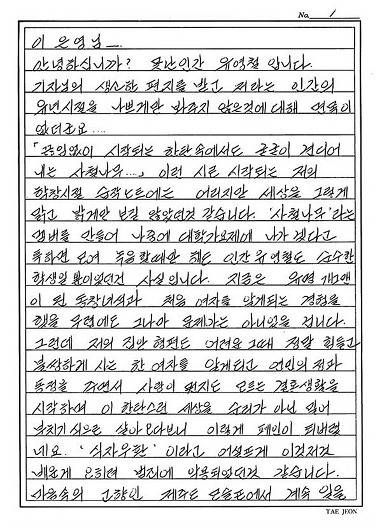 No. 1
이 은영님 ―.
안녕하십니까? 못난인간 유영철 입니다.
기자님의 생소한 편지를 받고 저라는 인간의
유년시절을 나쁘게만 봐주지 않은것에 대해 면목이
없더군요 ...
「끊임없이 시작되는 한탄속에서도 굳굳이 견디어
내는 사철나무 ...」 이런 시로 시작되는 저의
학창시절 습작노트에는 어리지만 세상을 그렇게
맑고 밝게만 보질 않았던것 같습니다. '사철나무'라는
멤버를 만들어 나중에 대학가요제에 나가겠다고
툭하면 모여 노래 할때만 해도 인간 유영철도 순수한
학생일 뿐이었던건 사실입니다. 지금은 유명 개그맨
이 된 녀석과 처음 여자를 알게되는 경험을
했을 무렵에도 그나마 문제가는 아니었을 겁니다.
그런데 저의 집안 형편도 어려운 그때 정말 힘들고
불쌍하게 사는 한 여자를 알게되고 연민의 정과
동정을 주면서 사랑이 뭔지도 모르는 결혼생활을
시작하며 이 한탄스런 세상을 순리가 아닌 밀어
부치기식으로 살아오다보니 이렇게 폐인이 되버렸
네요. '식자우환' 이라고 어설프게 이것저것
배운게 오히려 범죄에 악용되었던것 같습니다.
마음속의 고향인 제주도 모슬포에서 계속 일을
TAE JEON